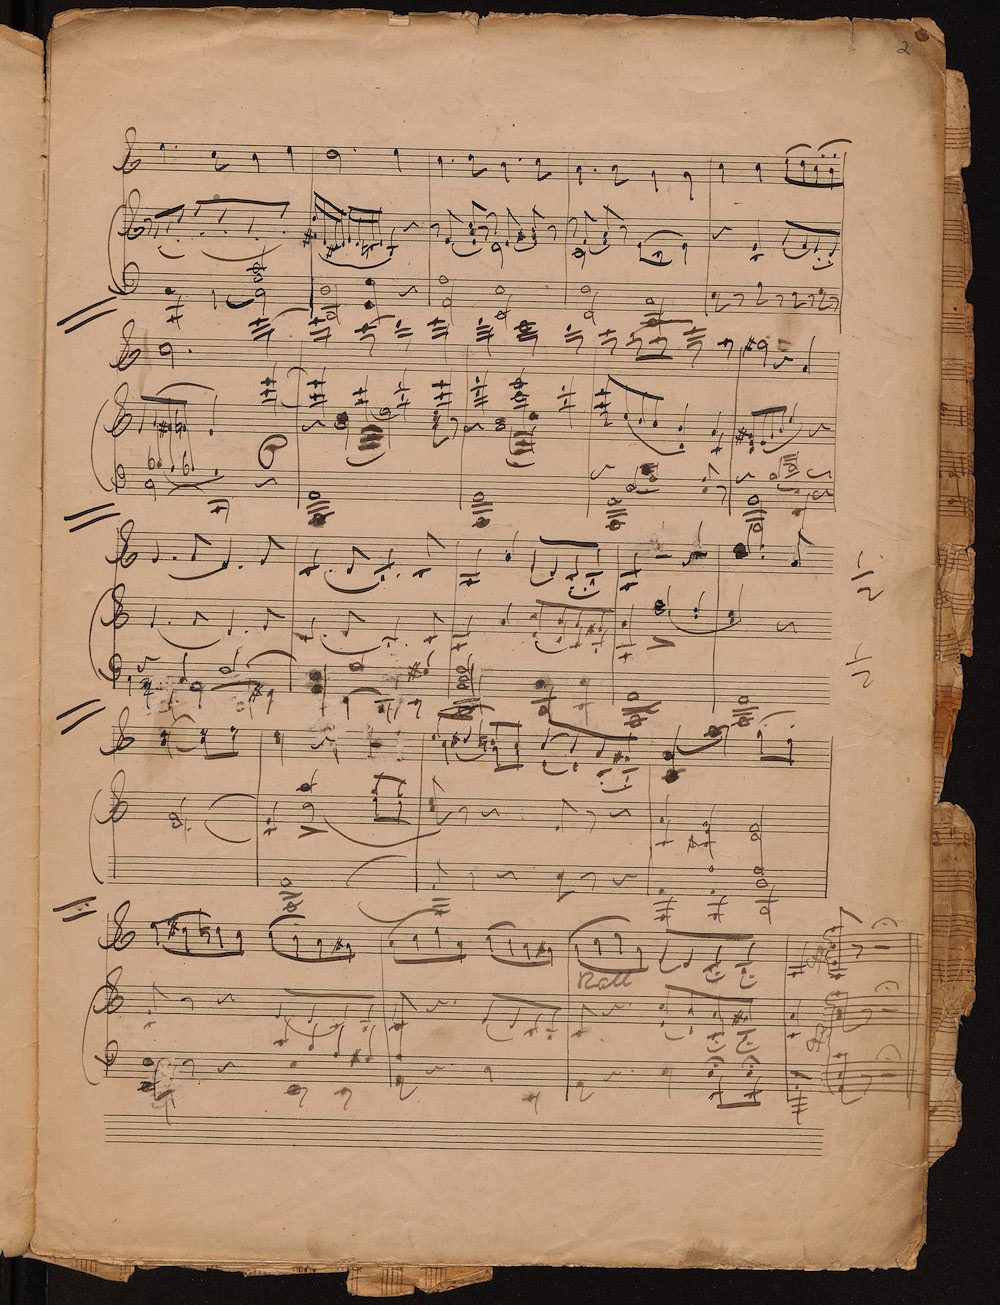 2
Rall